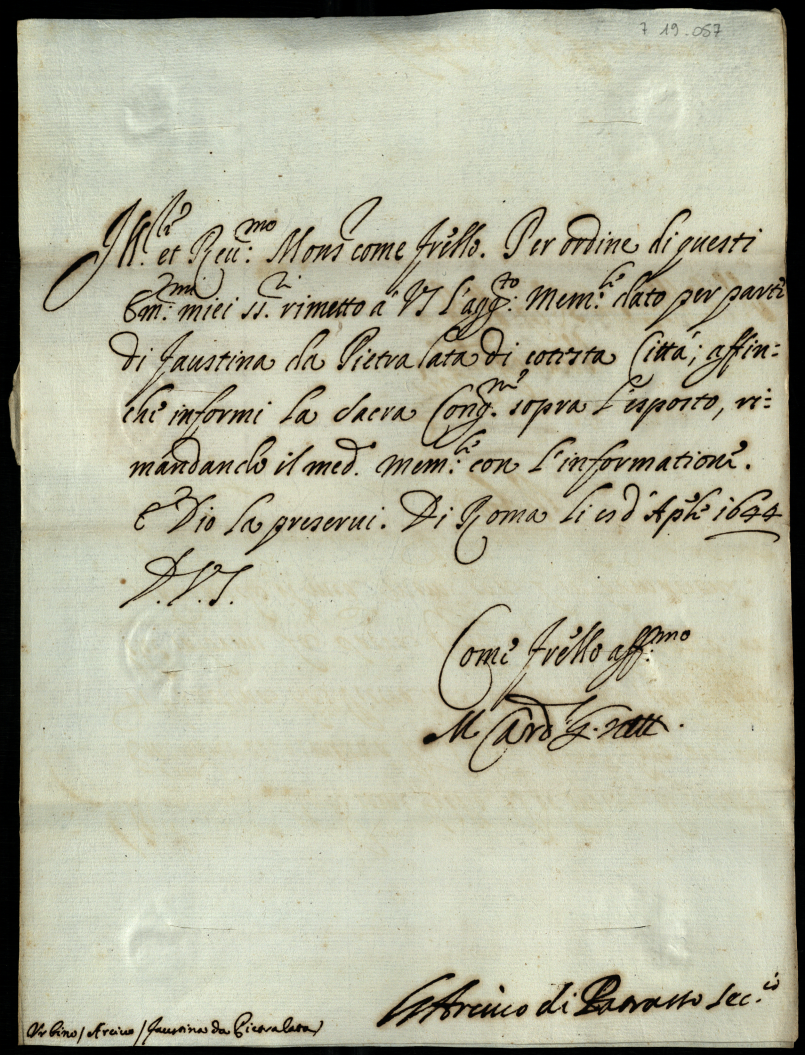 7 19-057
Ill.re et Reu.mo Mons.r come frello. Per ordine di questi
Em.mi miei ss.ri rimetto a' VS l'agg.to mem.le dato per parte
di Faustina da Pietra lata di cotesta Città; affin=
che informi la sacra Cong.ne sopra l'esposto, ri=
mandando il med. mem.le con l'informatione.
E Dio la preserui. Di Roma li d' Aple 1644
D.V.S.
Come frello aff.mo
M Card.
L'Arciuo di Patrasso Sec.rio
Vrbino / Arciuo / Faustina da Pietralata